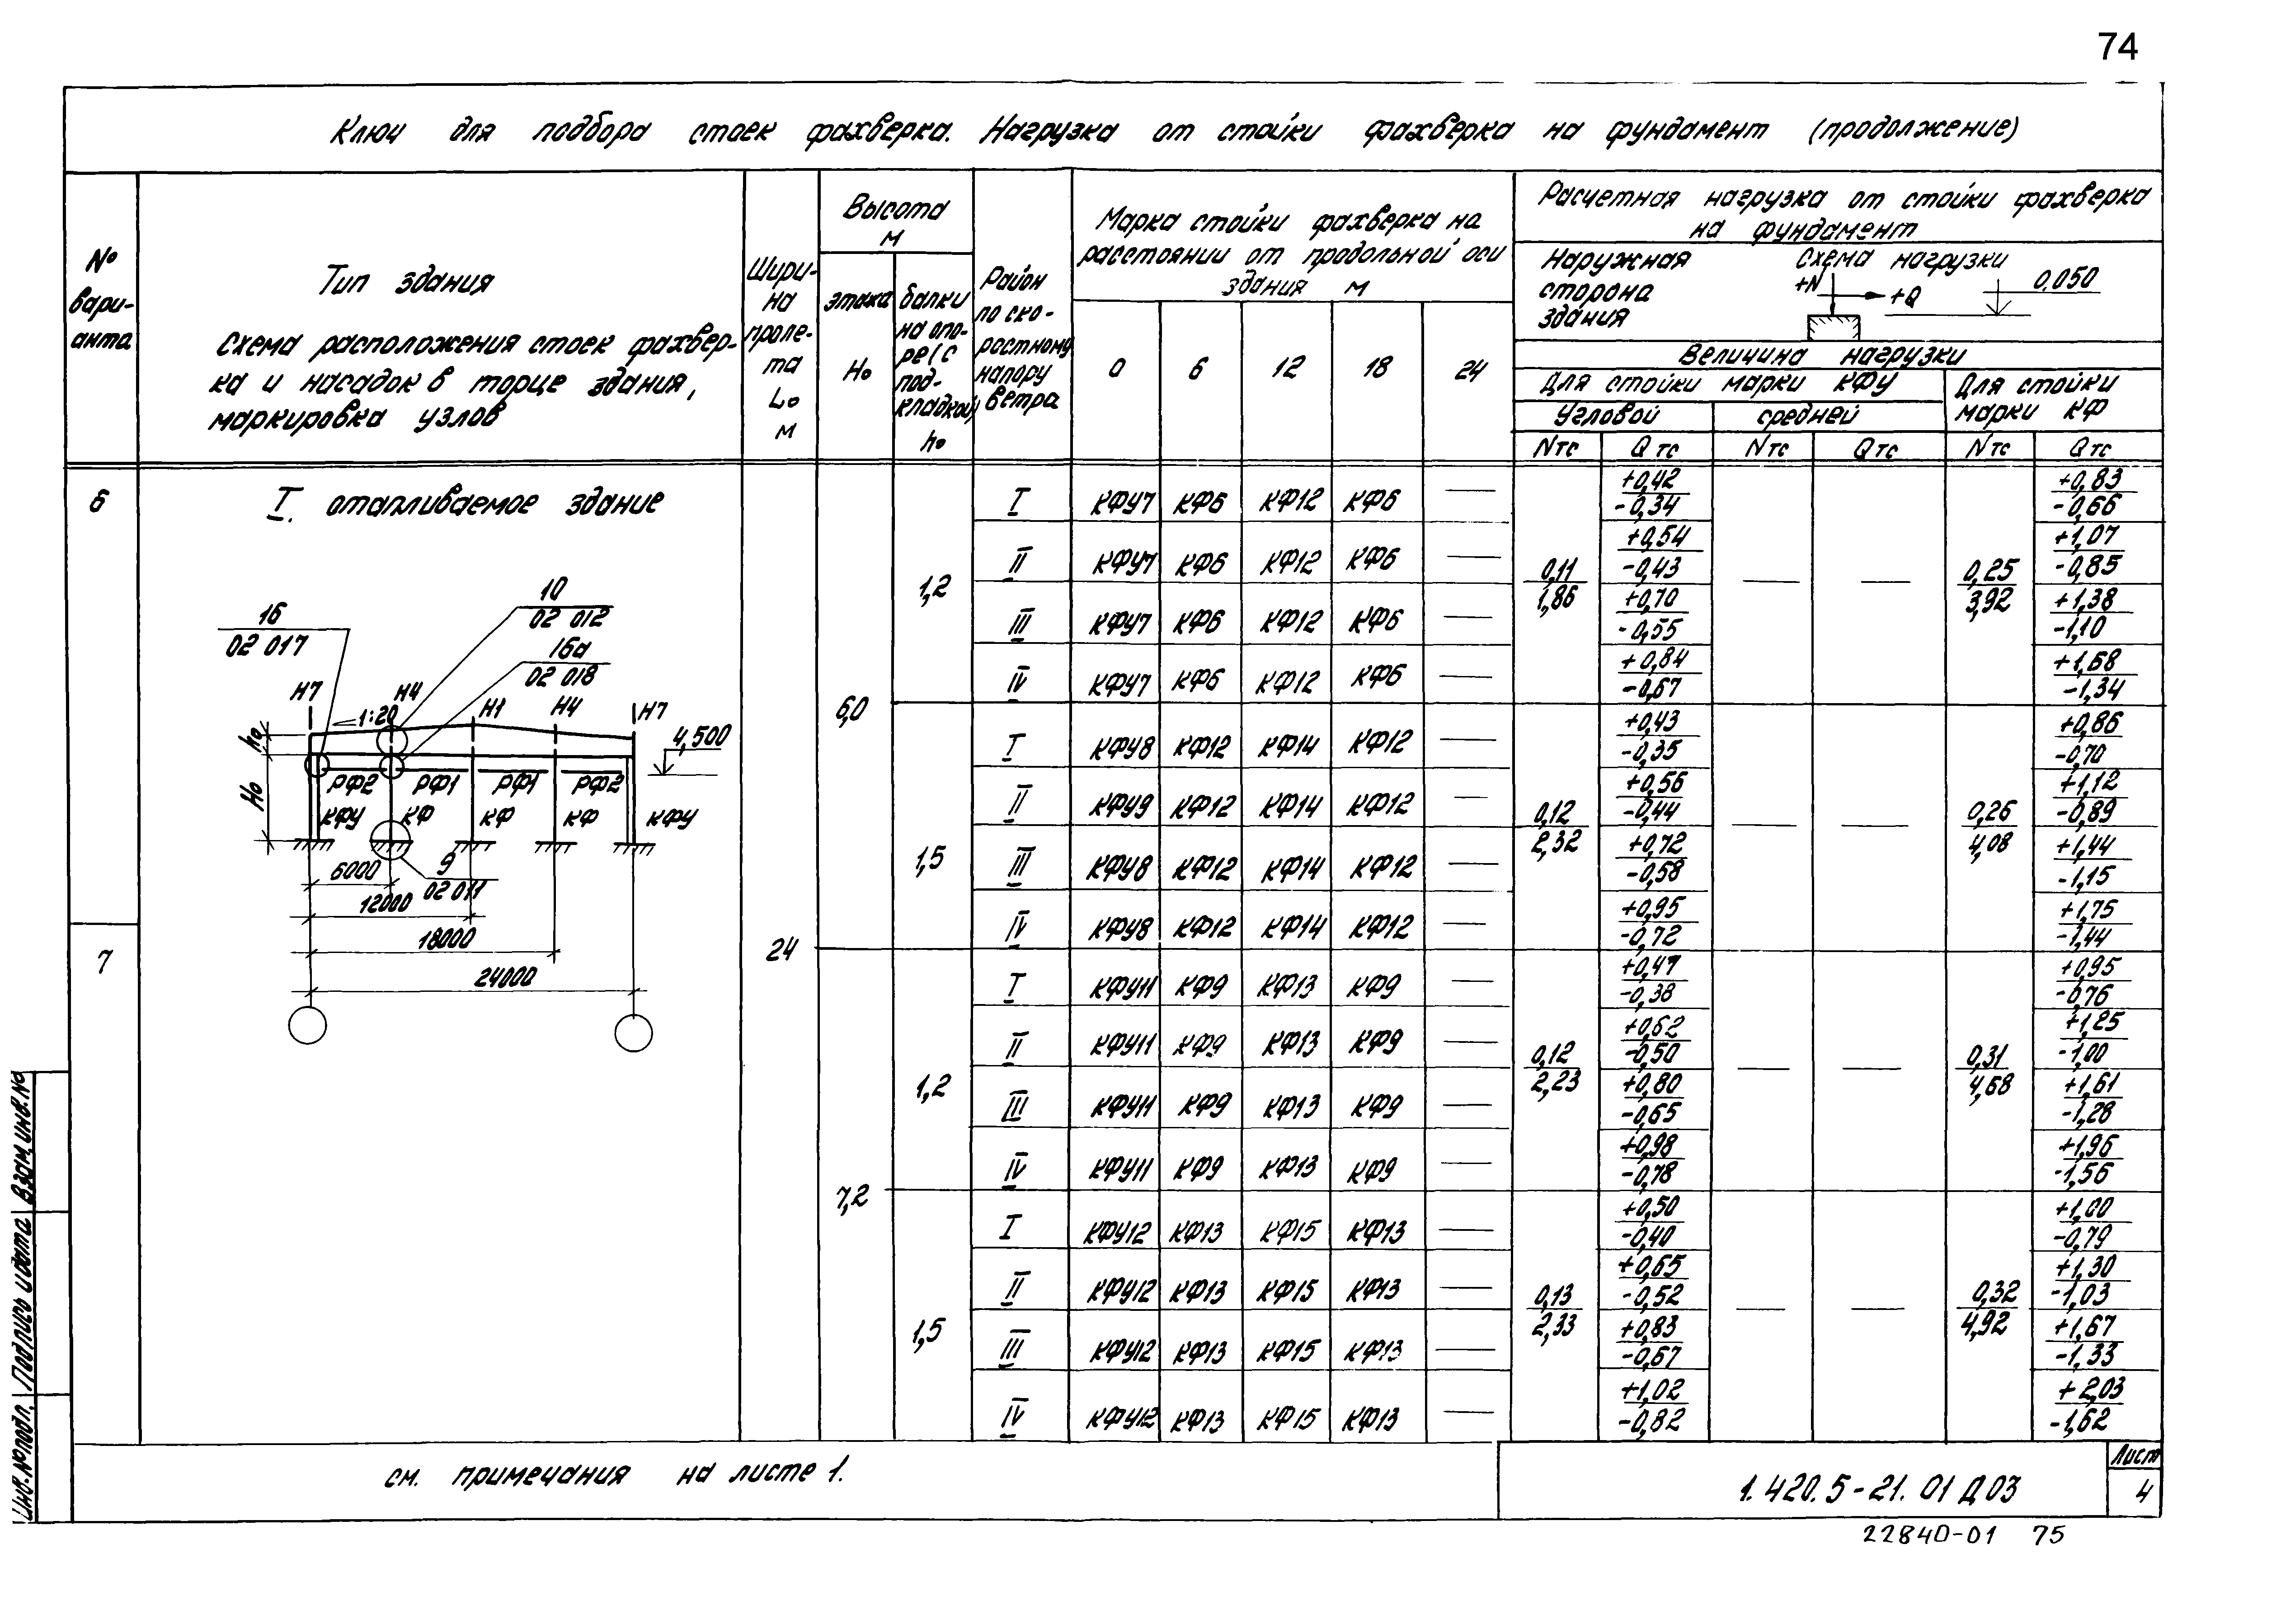 74
Ключ для подбора стоек фахверка. Нагрузка от стойки фахверка на фундамент (продолжение)
№ вари- анта
Тип здания
Схема расположения стоек фахвер-
ка и насадок в торце здания,
маркировка узлов
Шири- на проле- та L₀ м
Высота м
этажа H₀
балки на опо- ре (с под- кладкой) h₀
Район по ско- ростному напору ветра
Марка стойки фахверка на
расстоянии от продольной оси
здания м
0 6 12 18 24
Расчетная нагрузка от стойки фахверка
на фундамент
Наружная сторона здания
Схема нагрузки
+N +Q 0,050
Величина нагрузки
Для стойки марки КФУ
Для стойки марки КФ
Угловой средней
N тс Q тс N тс Q тс N тс Q тс
6
I. отапливаемое здание
10
02 012
16
02 017
16а
02 018
Н7 Н4 Н1 Н4 Н7
1:20
4,500
h₀
H₀
РФ2 РФ1 РФ1 РФ2
КФУ КФ КФ КФ КФУ
9
02 011
6000
12000
18000
24000
7
24
6,0
1,2
I КФУ7 КФ6 КФ12 КФ6 — +0,42 -0,34 +0,83 -0,66
II КФУ7 КФ6 КФ12 КФ6 — +0,54 -0,43 +1,07 -0,85
0,11 1,86 — — 0,25 3,92
III КФУ7 КФ6 КФ12 КФ6 — +0,70 -0,55 +1,38 -1,10
IV КФУ7 КФ6 КФ12 КФ6 — +0,84 -0,67 +1,68 -1,34
1,5
I КФУ8 КФ12 КФ14 КФ12 — +0,43 -0,35 +0,86 -0,70
II КФУ9 КФ12 КФ14 КФ12 — +0,56 -0,44 +1,12 -0,89
0,12 2,32 — — 0,26 4,08
III КФУ8 КФ12 КФ14 КФ12 — +0,72 -0,58 +1,44 -1,15
IV КФУ8 КФ12 КФ14 КФ12 — +0,95 -0,72 +1,75 -1,44
7,2
1,2
I КФУ11 КФ9 КФ13 КФ9 — +0,47 -0,38 +0,95 -0,76
II КФУ11 КФ9 КФ13 КФ9 — +0,62 -0,50 +1,25 -1,00
0,12 2,23 — — 0,31 4,68
III КФУ11 КФ9 КФ13 КФ9 — +0,80 -0,65 +1,61 -1,28
IV КФУ11 КФ9 КФ13 КФ9 — +0,98 -0,78 +1,96 -1,56
1,5
I КФУ12 КФ13 КФ15 КФ13 — +0,50 -0,40 +1,00 -0,79
II КФУ12 КФ13 КФ15 КФ13 — +0,65 -0,52 +1,30 -1,03
0,13 2,33 — — 0,32 4,92
III КФУ12 КФ13 КФ15 КФ13 — +0,83 -0,67 +1,67 -1,33
IV КФУ12 КФ13 КФ15 КФ13 — +1,02 -0,82 +2,03 -1,62
см. примечания на листе 1.
1.420.5-21.01 Д03
Лист
4
22840-01 75
Инв.№подл. Подпись и дата Взам.инв.№